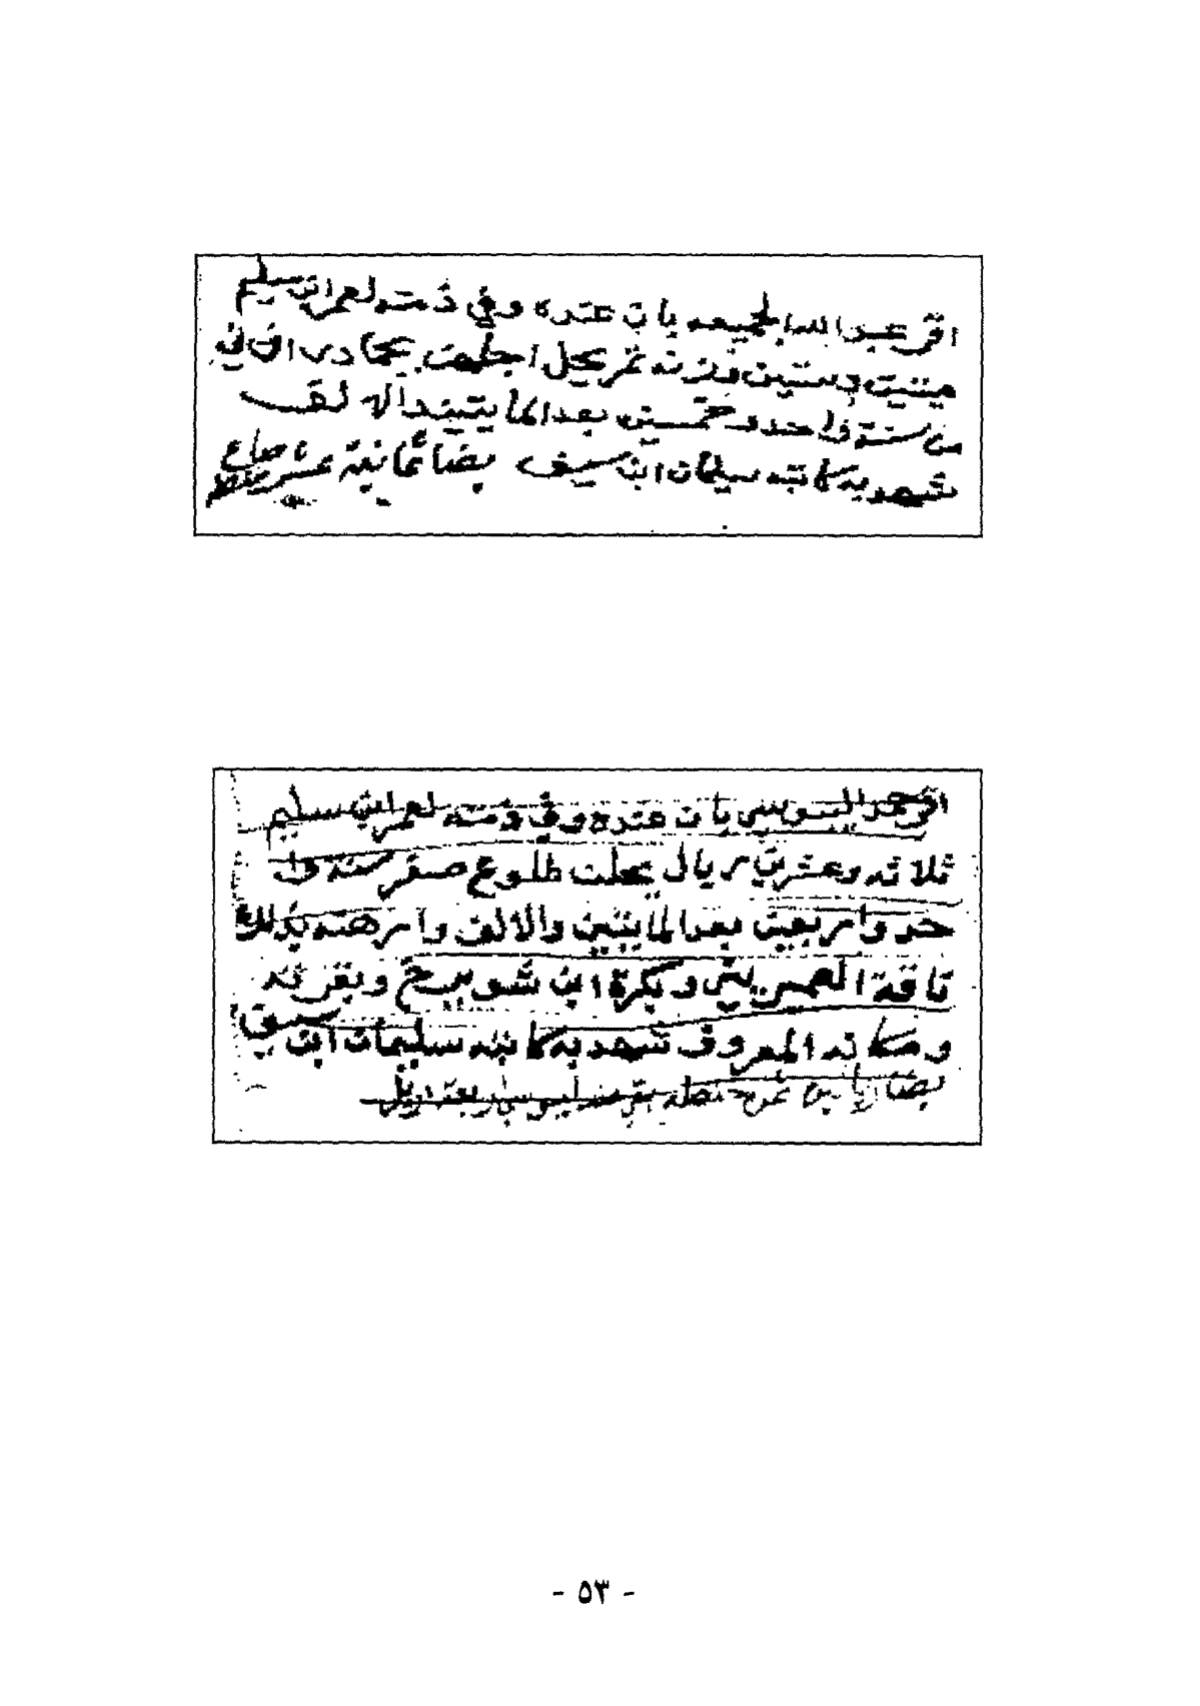 اقر عبد الله الجميعه بان عنده وفي ذمته لعمر ابن سليم
ميتين وستين وزنه تمر يحل اجلهن بجمادى الثاني
من سنة واحد وخمسين بعد المايتين والالف
شهد به كاتبه سليمان ابن سيف ايضا ثمانية عشر صاع
اقر حمد السويسي بان عنده وفي ذمته لعمر ابن سليم
ثلاثه وعشرين ريال يحلن طلوع صفر سنه وا
حد واربعين بعد المايتين والالف وارهنه بذلك
ناقة وبكرة ابن شويرخ وبقرته
ومكانه المعروف شهد به كاتبه سليمان ابن سيف
ايضا اربعة اريل
- ٥٣ -